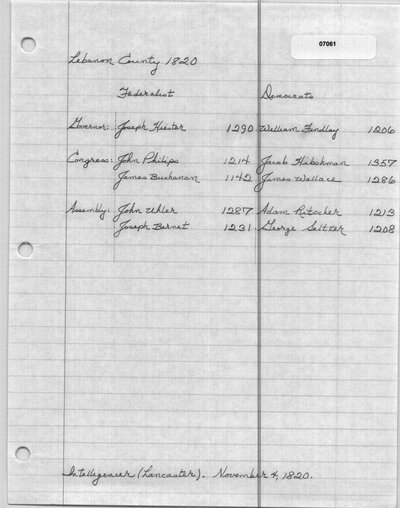 07061
Lebanon County 1820
Federalist Democrats
Governor: Joseph Hiester 1290 William Findlay 1206
Congress: John Philips 1214 Jacob Hibshman 1357
James Buchanan 1142 James Wallace 1286
Assembly: John Uhler 1287 Adam Ritscher 1213
Joseph Barnet 1231 George Seltzer 1208
Intelligencer (Lancaster). November 4, 1820.